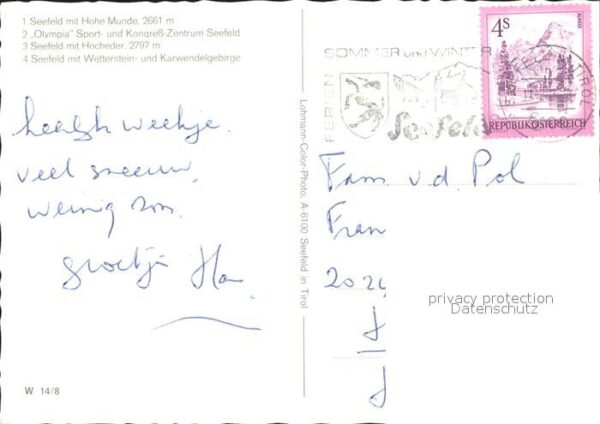 1 Seefeld mit Hohe Munde. 2661 m
2 „Olympia" Sport- und Kongreß-Zentrum Seefeld
3 Seefeld mit Hocheder. 2797 m
4 Seefeld mit Wetterstein- und Karwendelgebirge
heerlijk weekje.
veel sneeuw,
weinig zon.
groetjes Han
W 14/8
Lohmann-Color-Photo, A-6100 Seefeld in Tirol
FERIEN
SOMMER und WINTER
Seefeld
TIROL
4S
REPUBLIK ÖSTERREICH
Fam. v.d. Pol
Fran
2024
privacy protection
Datenschutz